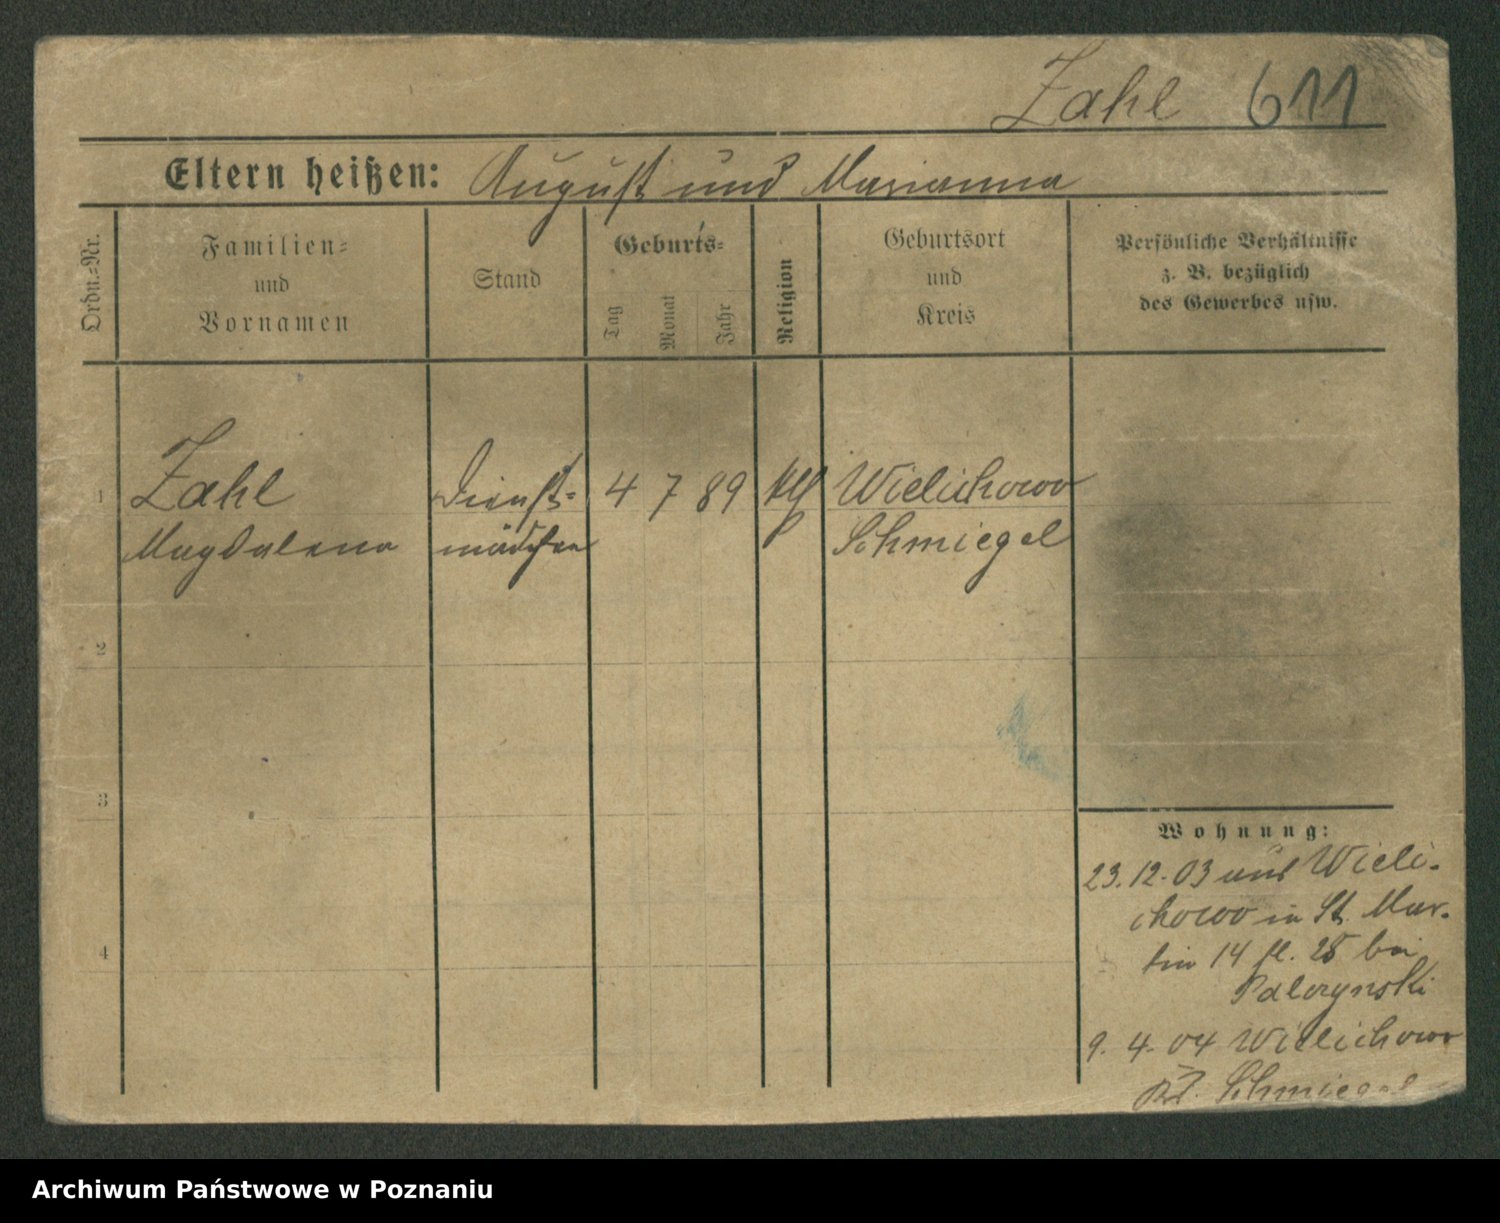 Zahl 611
Eltern heißen: August und Marianna
Ordn.=Nr.
Familien=
und
Vornamen
Stand
Geburts=
Tag
Monat
Jahr
Religion
Geburtsort
und
Kreis
Persönliche Verhältnisse
z. B. bezüglich
des Gewerbes usw.
1 Zahl Dienst= 4 7 89 kth Wielichowo
Magdalena mädchen Schmiegel
2
3
4
Wohnung:
23.12.03 aus Wieli-
chowo in St. Mar-
tin 14 bei
9. 4. 04 Wielichowo
Kr. Schmiegel
Archiwum Państwowe w Poznaniu